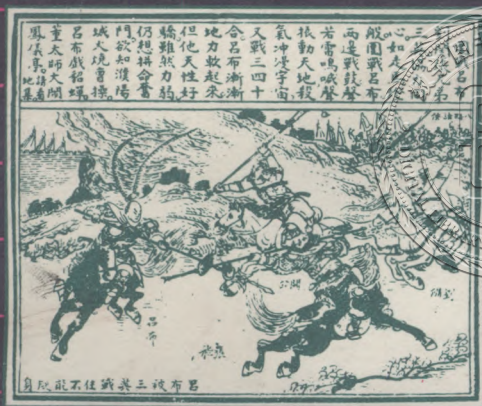 呂布
兄弟
心如走
般團戰呂布
兩邊戰鼓聲
若雷鳴喊聲
振動天地殺
氣冲漫宇宙
又戰三四十
合呂布漸漸
地力軟起來
但他天性好
驕雖然力弱
仍想拼命奮
鬥欲知濮陽
城大燒曹操
呂布戲貂蟬
董太師大鬧
鳳儀亭請看
地集
劉備
關公
張飛
呂布
呂布被三英戰住不能脫身